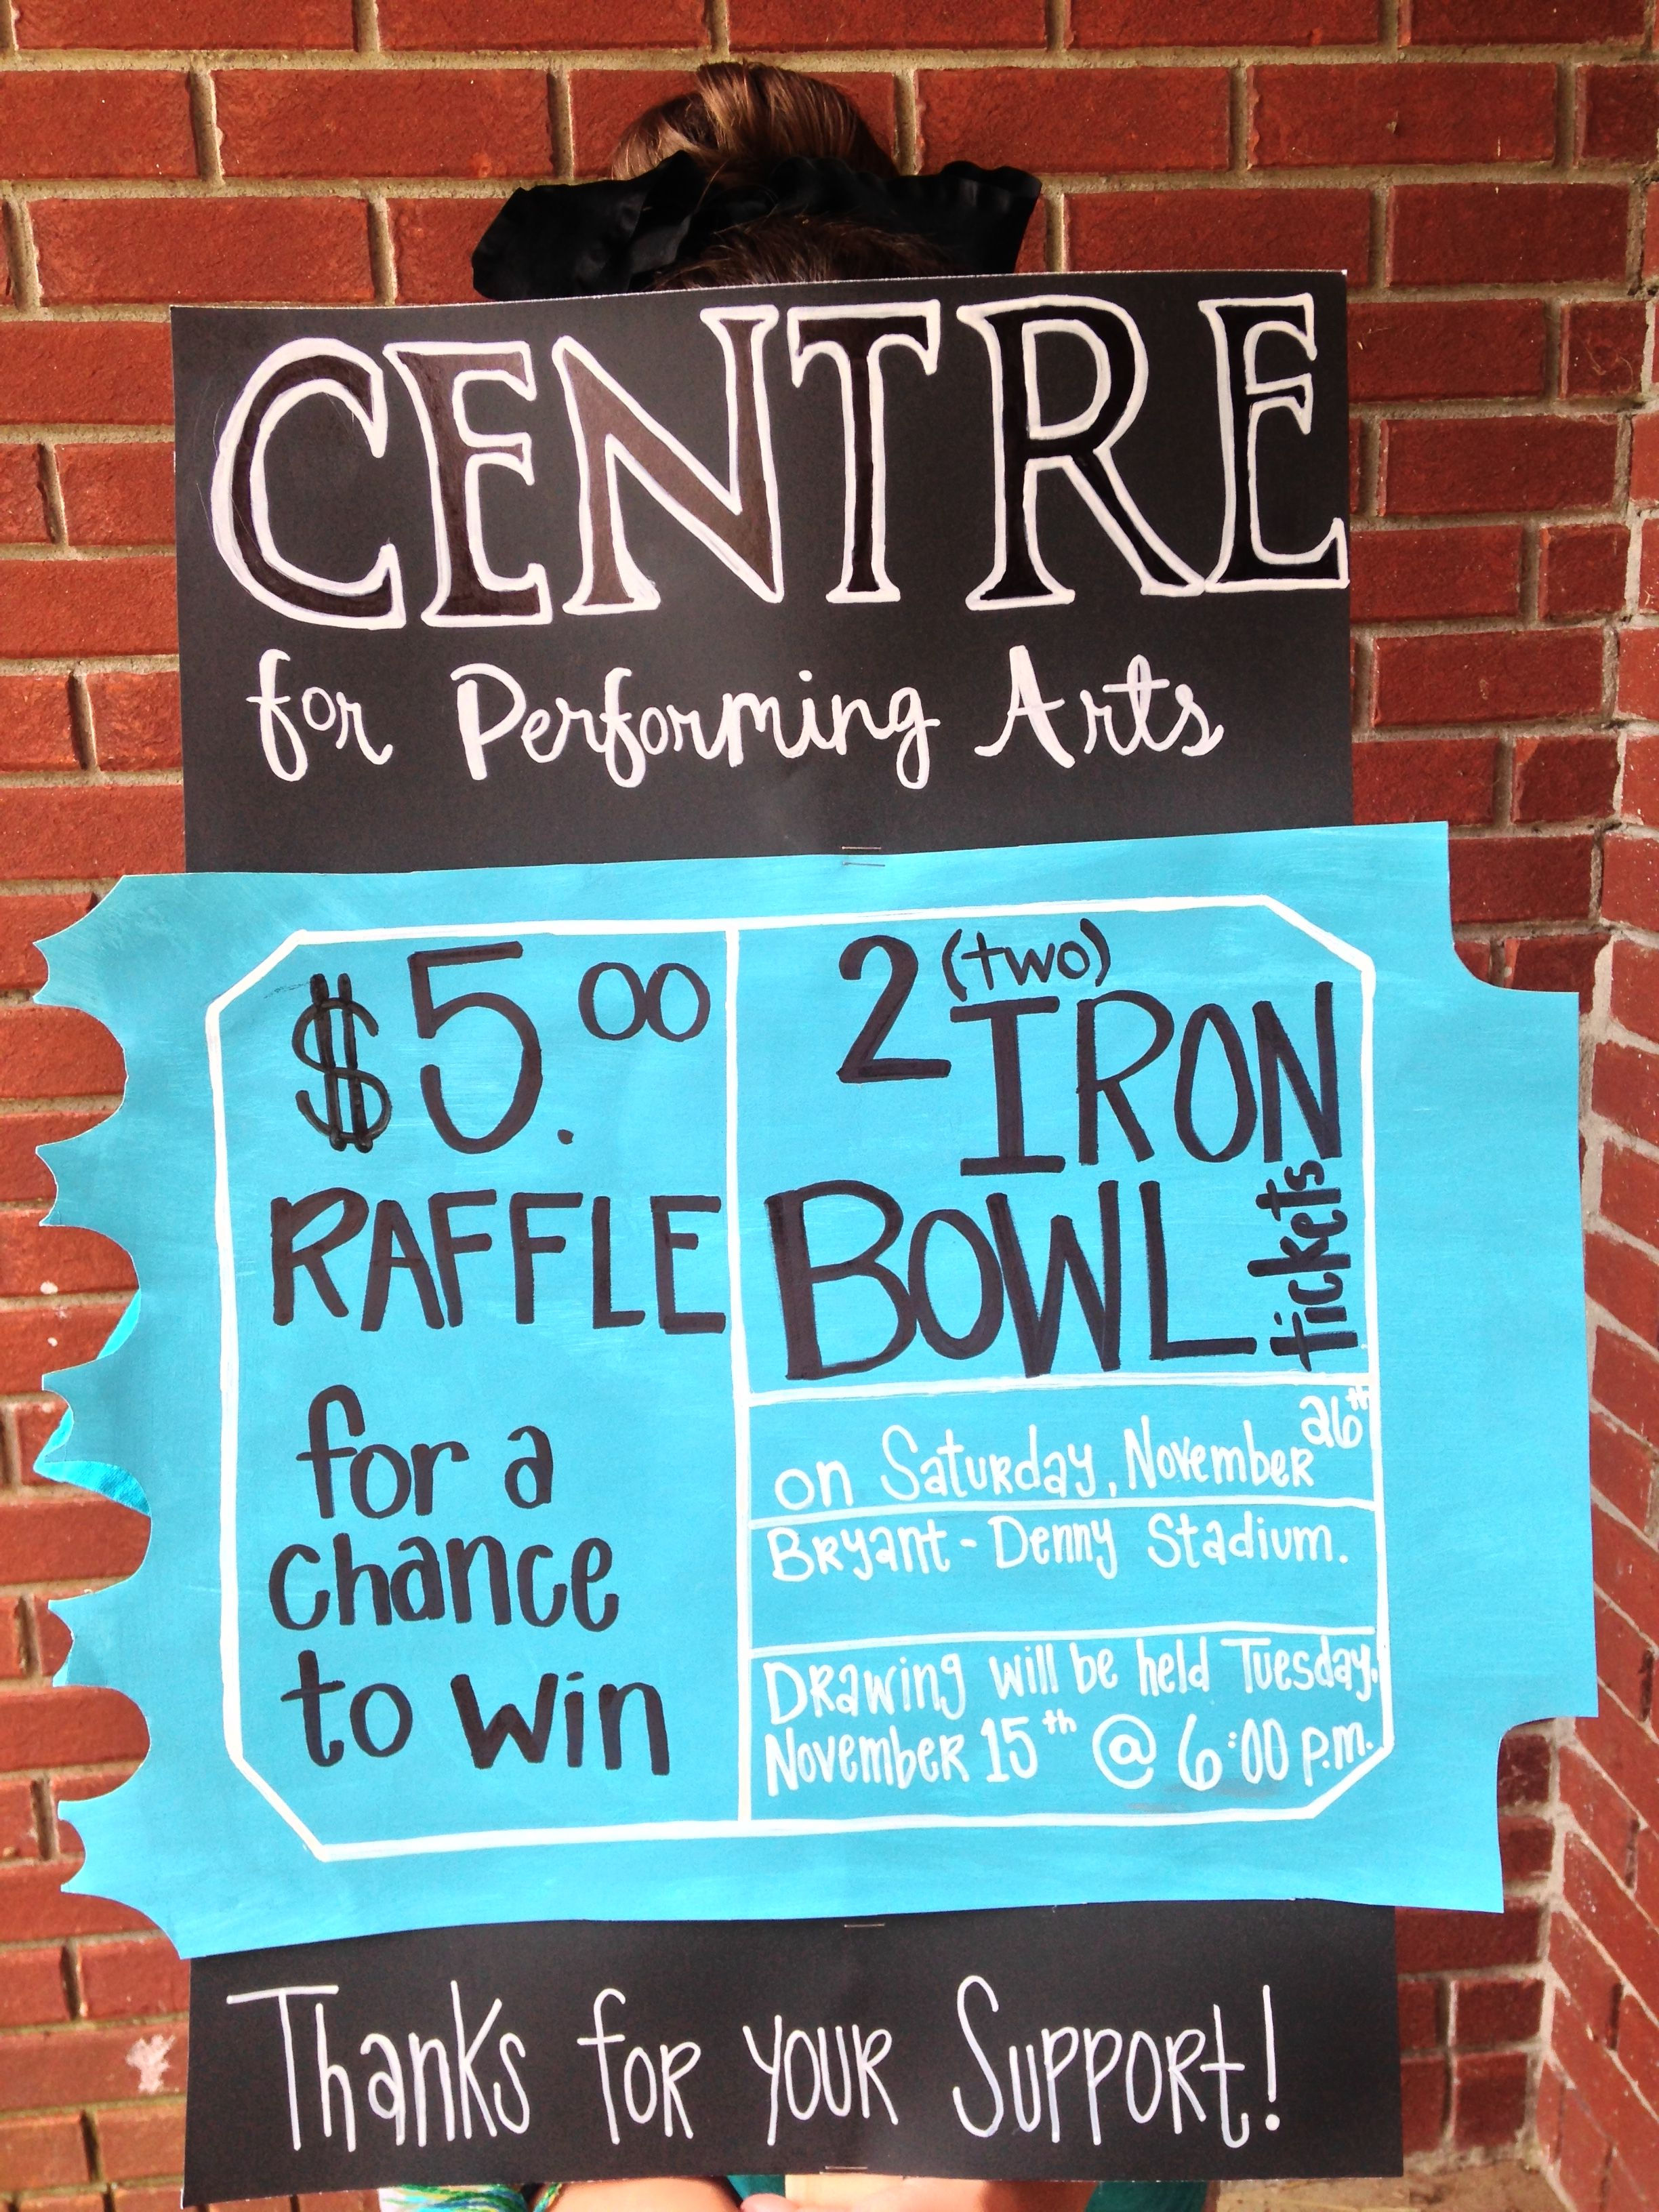 CENTRE
for Performing Arts
$5.00
RAFFLE
for a
chance
to win
2 (two)
IRON
BOWL
tickets
on Saturday, November 26th
Bryant-Denny Stadium.
Drawing will be held Tuesday,
November 15th @ 6:00 p.m.
Thanks for your Support!